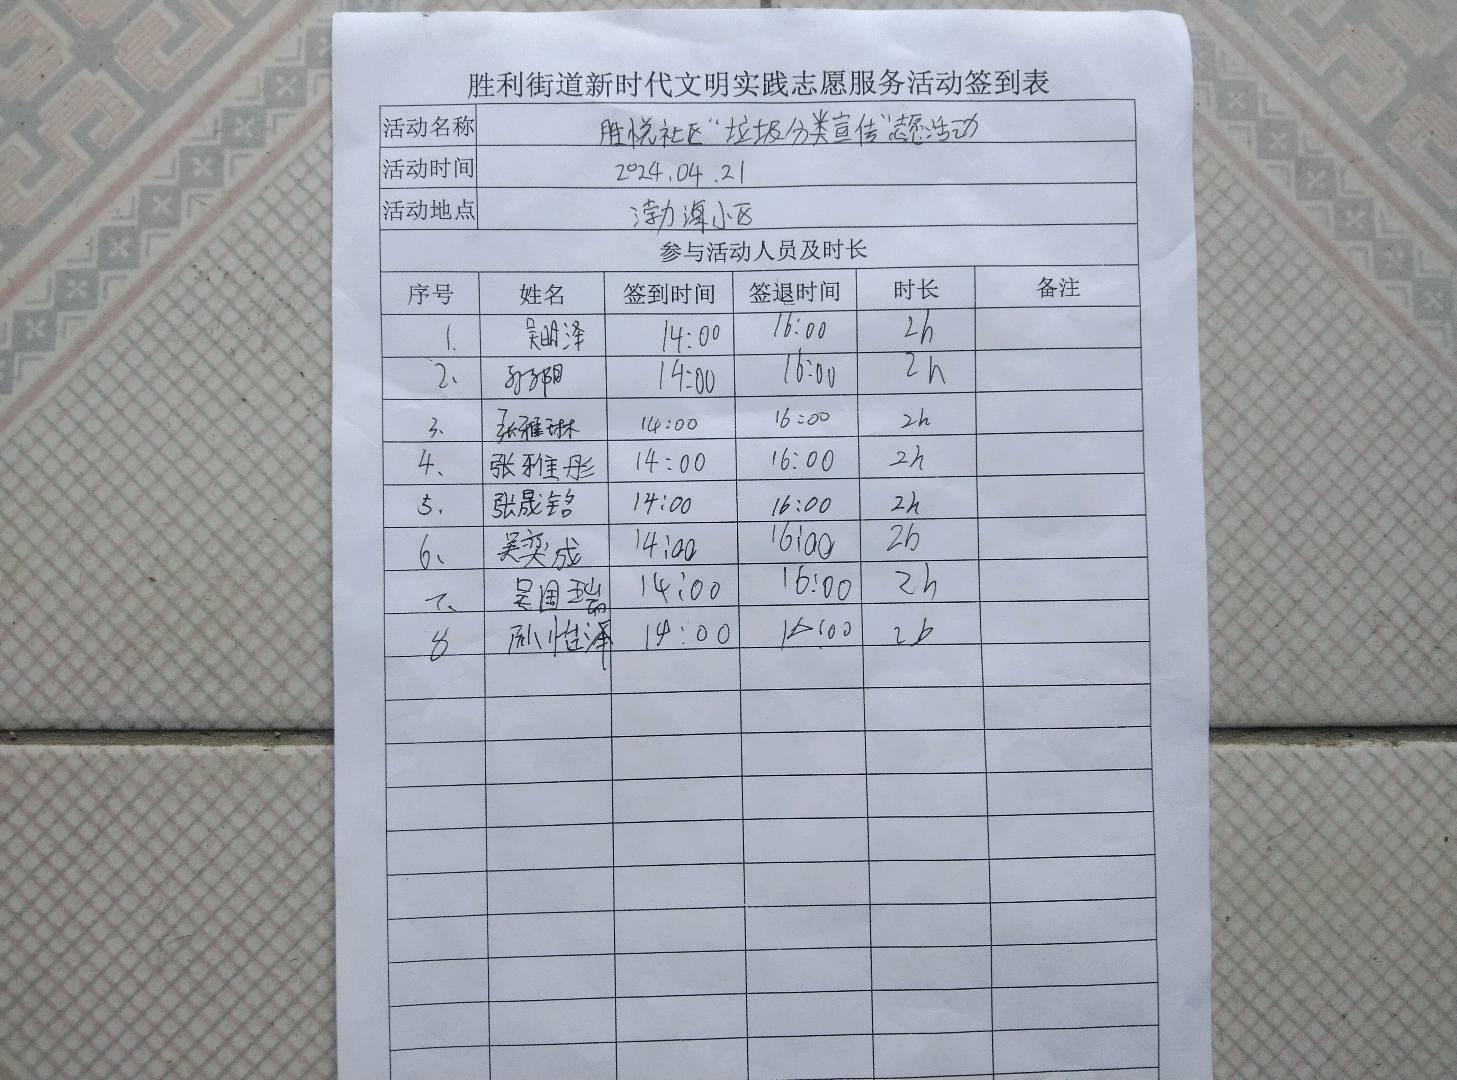 胜利街道新时代文明实践志愿服务活动签到表
活动名称 胜悦社区“垃圾分类宣传”志愿活动
活动时间 2024.04.21
活动地点 渤海小区
参与活动人员及时长
序号 姓名 签到时间 签退时间 时长 备注
1. 吴明泽 14:00 16:00 2h
2、 14:00 16:00 2h
3、 张雅琳 14:00 16:00 2h
4、 张雅彤 14:00 16:00 2h
5. 张晟铭 14:00 16:00 2h
6、 吴奕成 14:00 16:00 2h
7、 吴国瑞 14:00 16:00 2h
8 14:00 16:00 2h